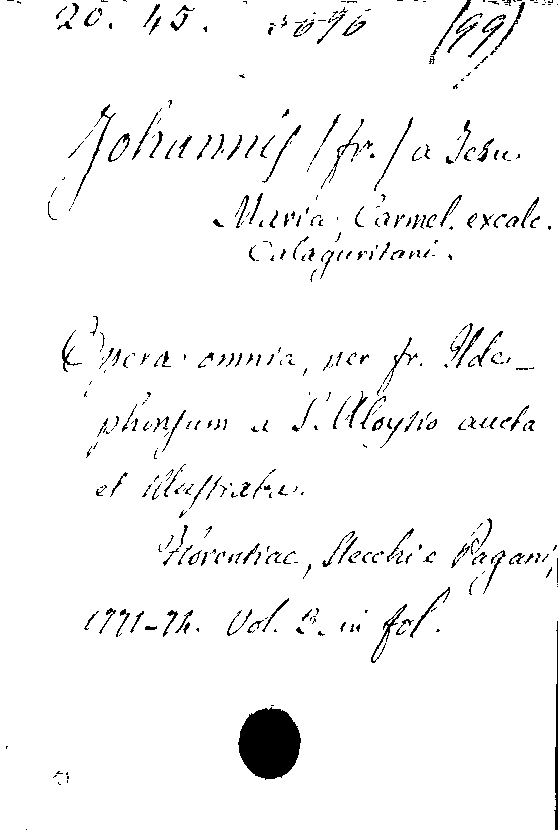 20. 45. (99)
Johannis (fr.) a Jesu
Maria, Carmel. excalc.
Calaguritani.
Opera omnia, per fr. Ilde-
phonsum a S. Aloysio aucta
et illustrata.
Florentiae, Stecchi e Pagani,
1771-74. Vol. 3. in fol.